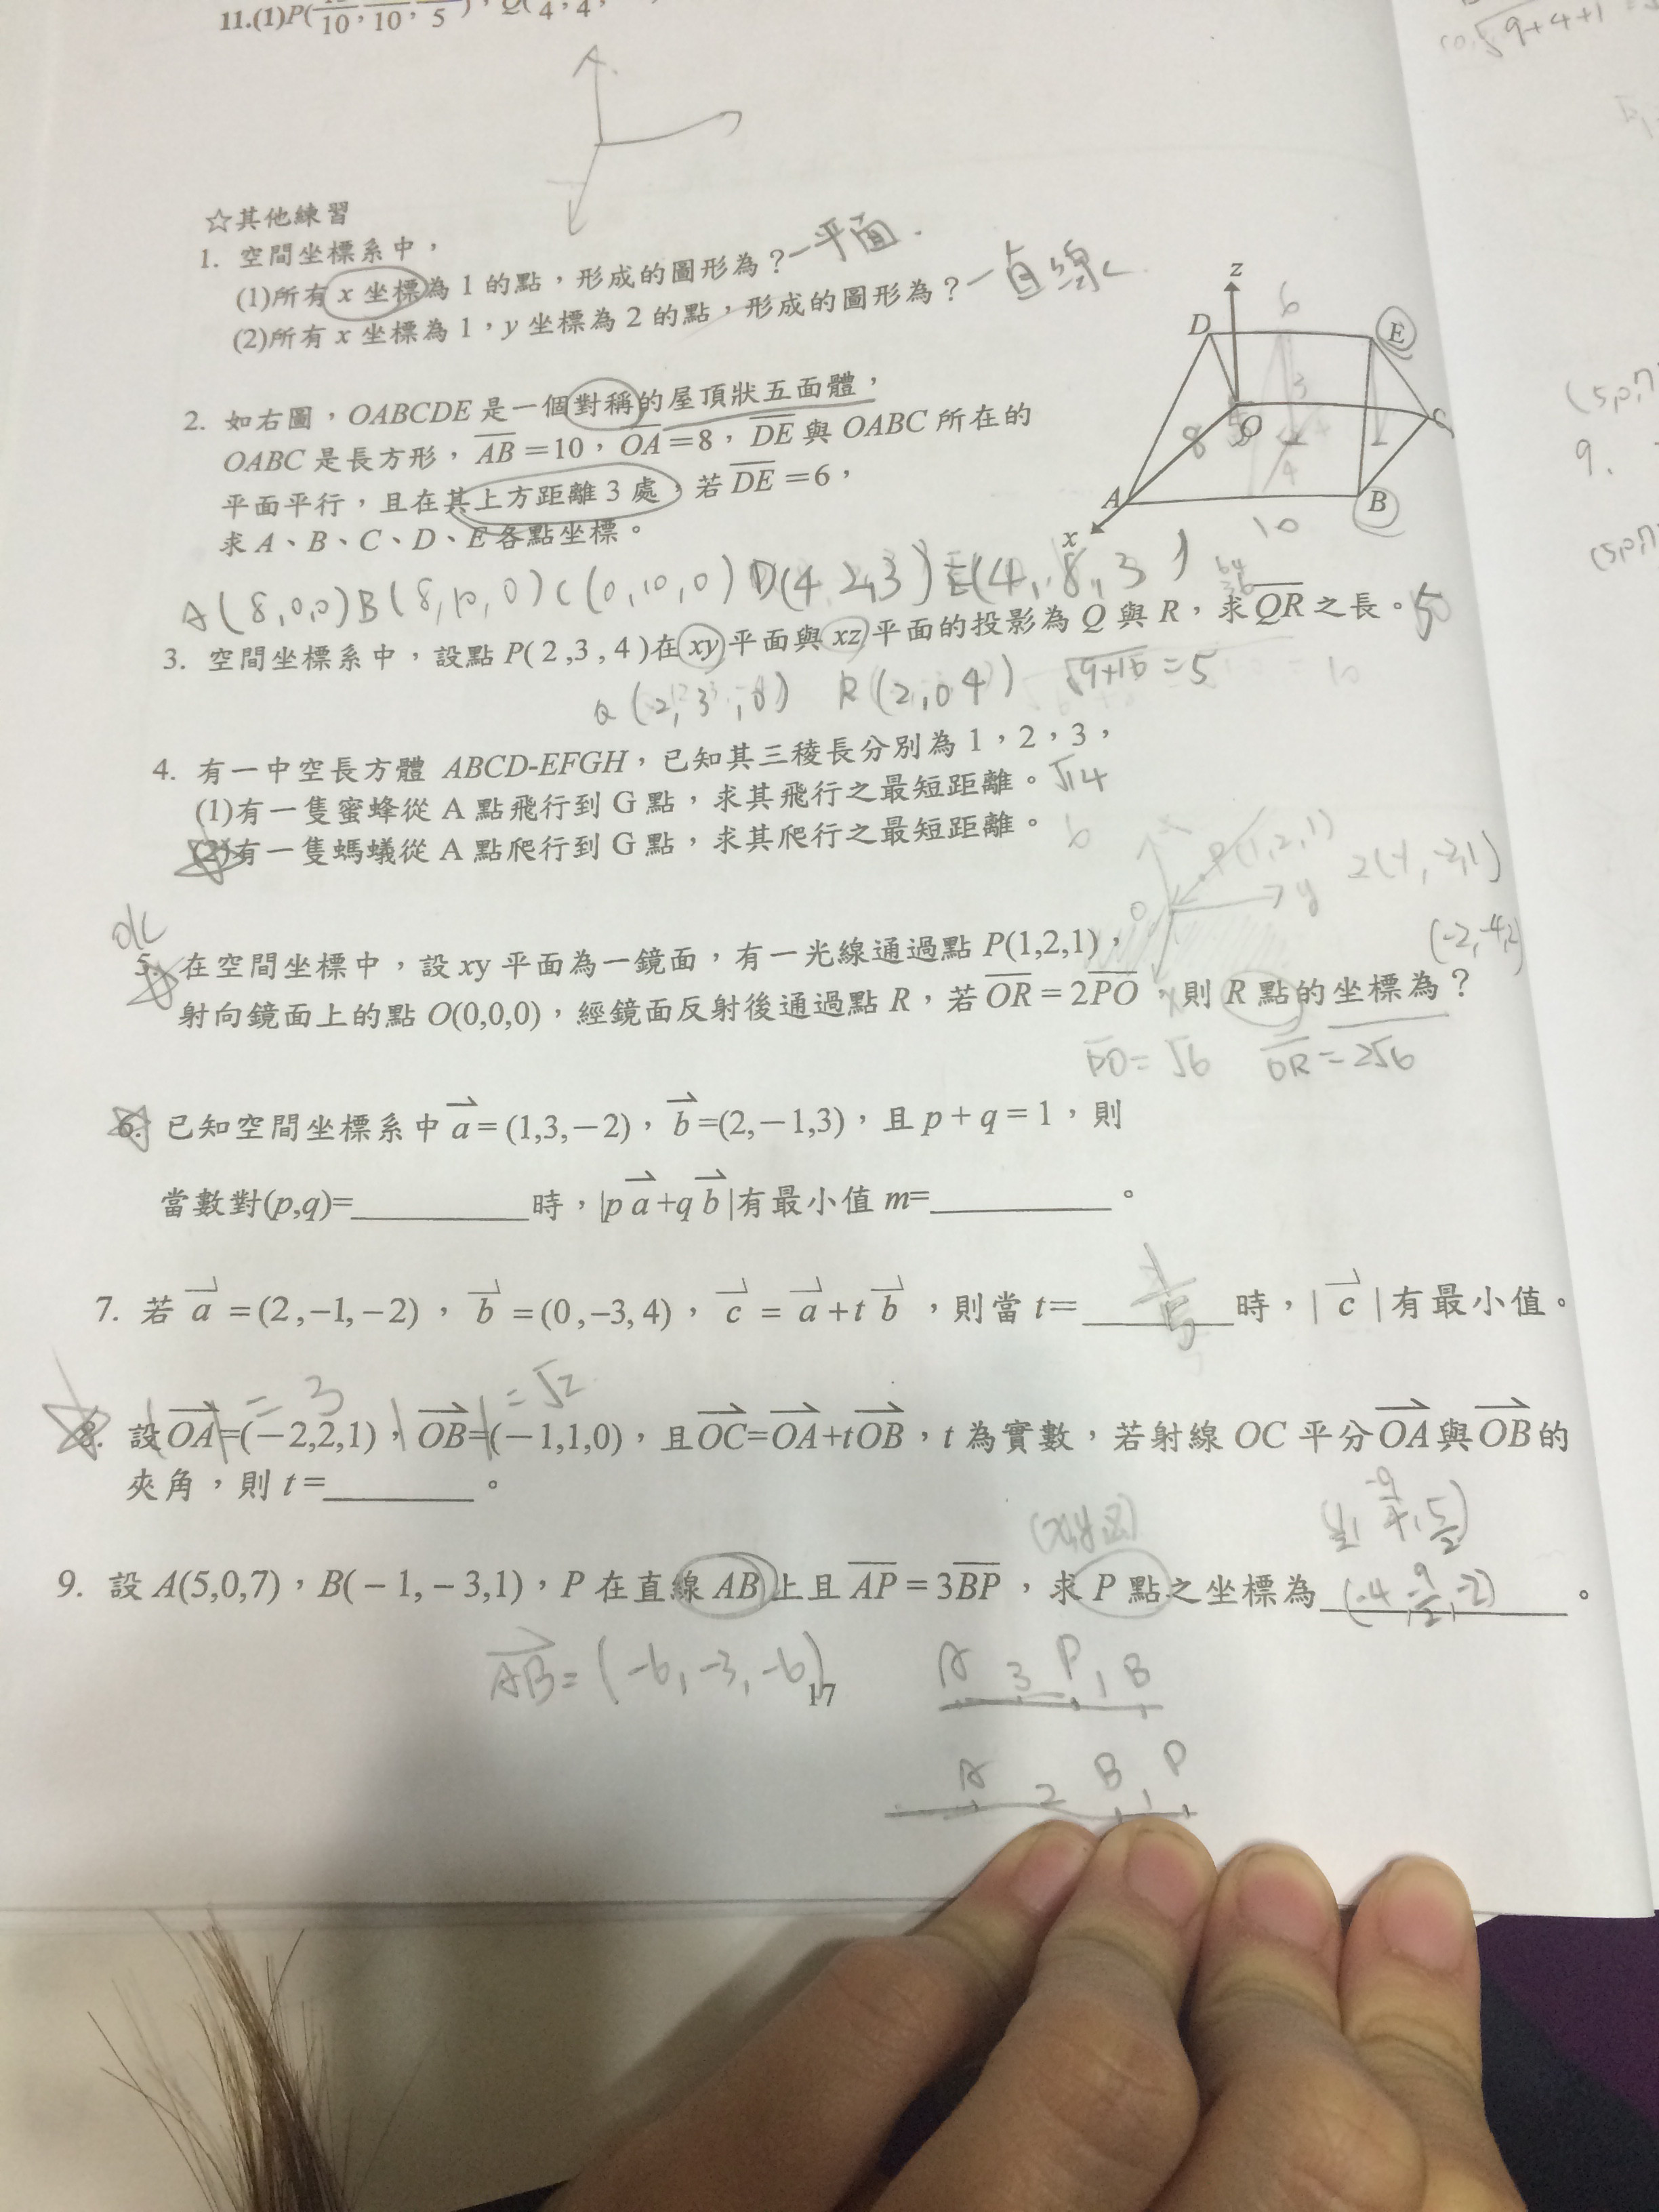 11.(1)P(
10 , 10 , 5 ) , Q( 4 , 4 ,
9+4+1
☆其他練習
1. 空間坐標系中，
(1)所有 x 坐標為 1 的點，形成的圖形為？一平面.
(2)所有 x 坐標為 1，y 坐標為 2 的點，形成的圖形為？一直線
z
6
D
E
3
O
C
8
4
A
B
x
10
2. 如右圖，OABCDE 是一個對稱的屋頂狀五面體，
OABC 是長方形，AB =10，OA =8，DE 與 OABC 所在的
平面平行，且在其上方距離 3 處，若 DE =6，
求 A、B、C、D、E 各點坐標。
9.
A(8,0,0) B(8,10,0) C(0,10,0) D(4,2,3) E(4,8,3)
3. 空間坐標系中，設點 P( 2 ,3 , 4 )在 xy 平面與 xz 平面的投影為 Q 與 R，求 QR 之長。5
Q(2,3,0) R(2,0,4) √9+16 =5
4. 有一中空長方體 ABCD-EFGH，已知其三稜長分別為 1，2，3，
(1)有一隻蜜蜂從 A 點飛行到 G 點，求其飛行之最短距離。√14
(2)有一隻螞蟻從 A 點爬行到 G 點，求其爬行之最短距離。6
P(1,2,1)
O
y
x
2(-1,-2,1)
(-2,-4,2)
5. 在空間坐標中，設 xy 平面為一鏡面，有一光線通過點 P(1,2,1)，
射向鏡面上的點 O(0,0,0)，經鏡面反射後通過點 R，若 OR = 2PO，則 R 點的坐標為？
PO=√6 OR=2√6
6. 已知空間坐標系中 a = (1,3,−2)，b =(2,−1,3)，且 p + q = 1，則
當數對(p,q)=__________時，|p a +q b |有最小值 m=__________。
7. 若 a =(2,−1,−2)，b =(0,−3,4)，c = a + t b，則當 t=________時，| c |有最小值。
=3 =√2
8. 設 OA=(−2,2,1)，OB=(−1,1,0)，且 OC=OA+tOB，t 為實數，若射線 OC 平分 OA 與 OB 的
夾角，則 t =________。
(x,y,z)
9. 設 A(5,0,7)，B(−1,−3,1)，P 在直線 AB 上且 AP = 3BP，求 P 點之坐標為 (-4,-9/2,-2)。
AB=(-6,-3,-6)
17
A 3 P 1 B
A 2 B 1 P